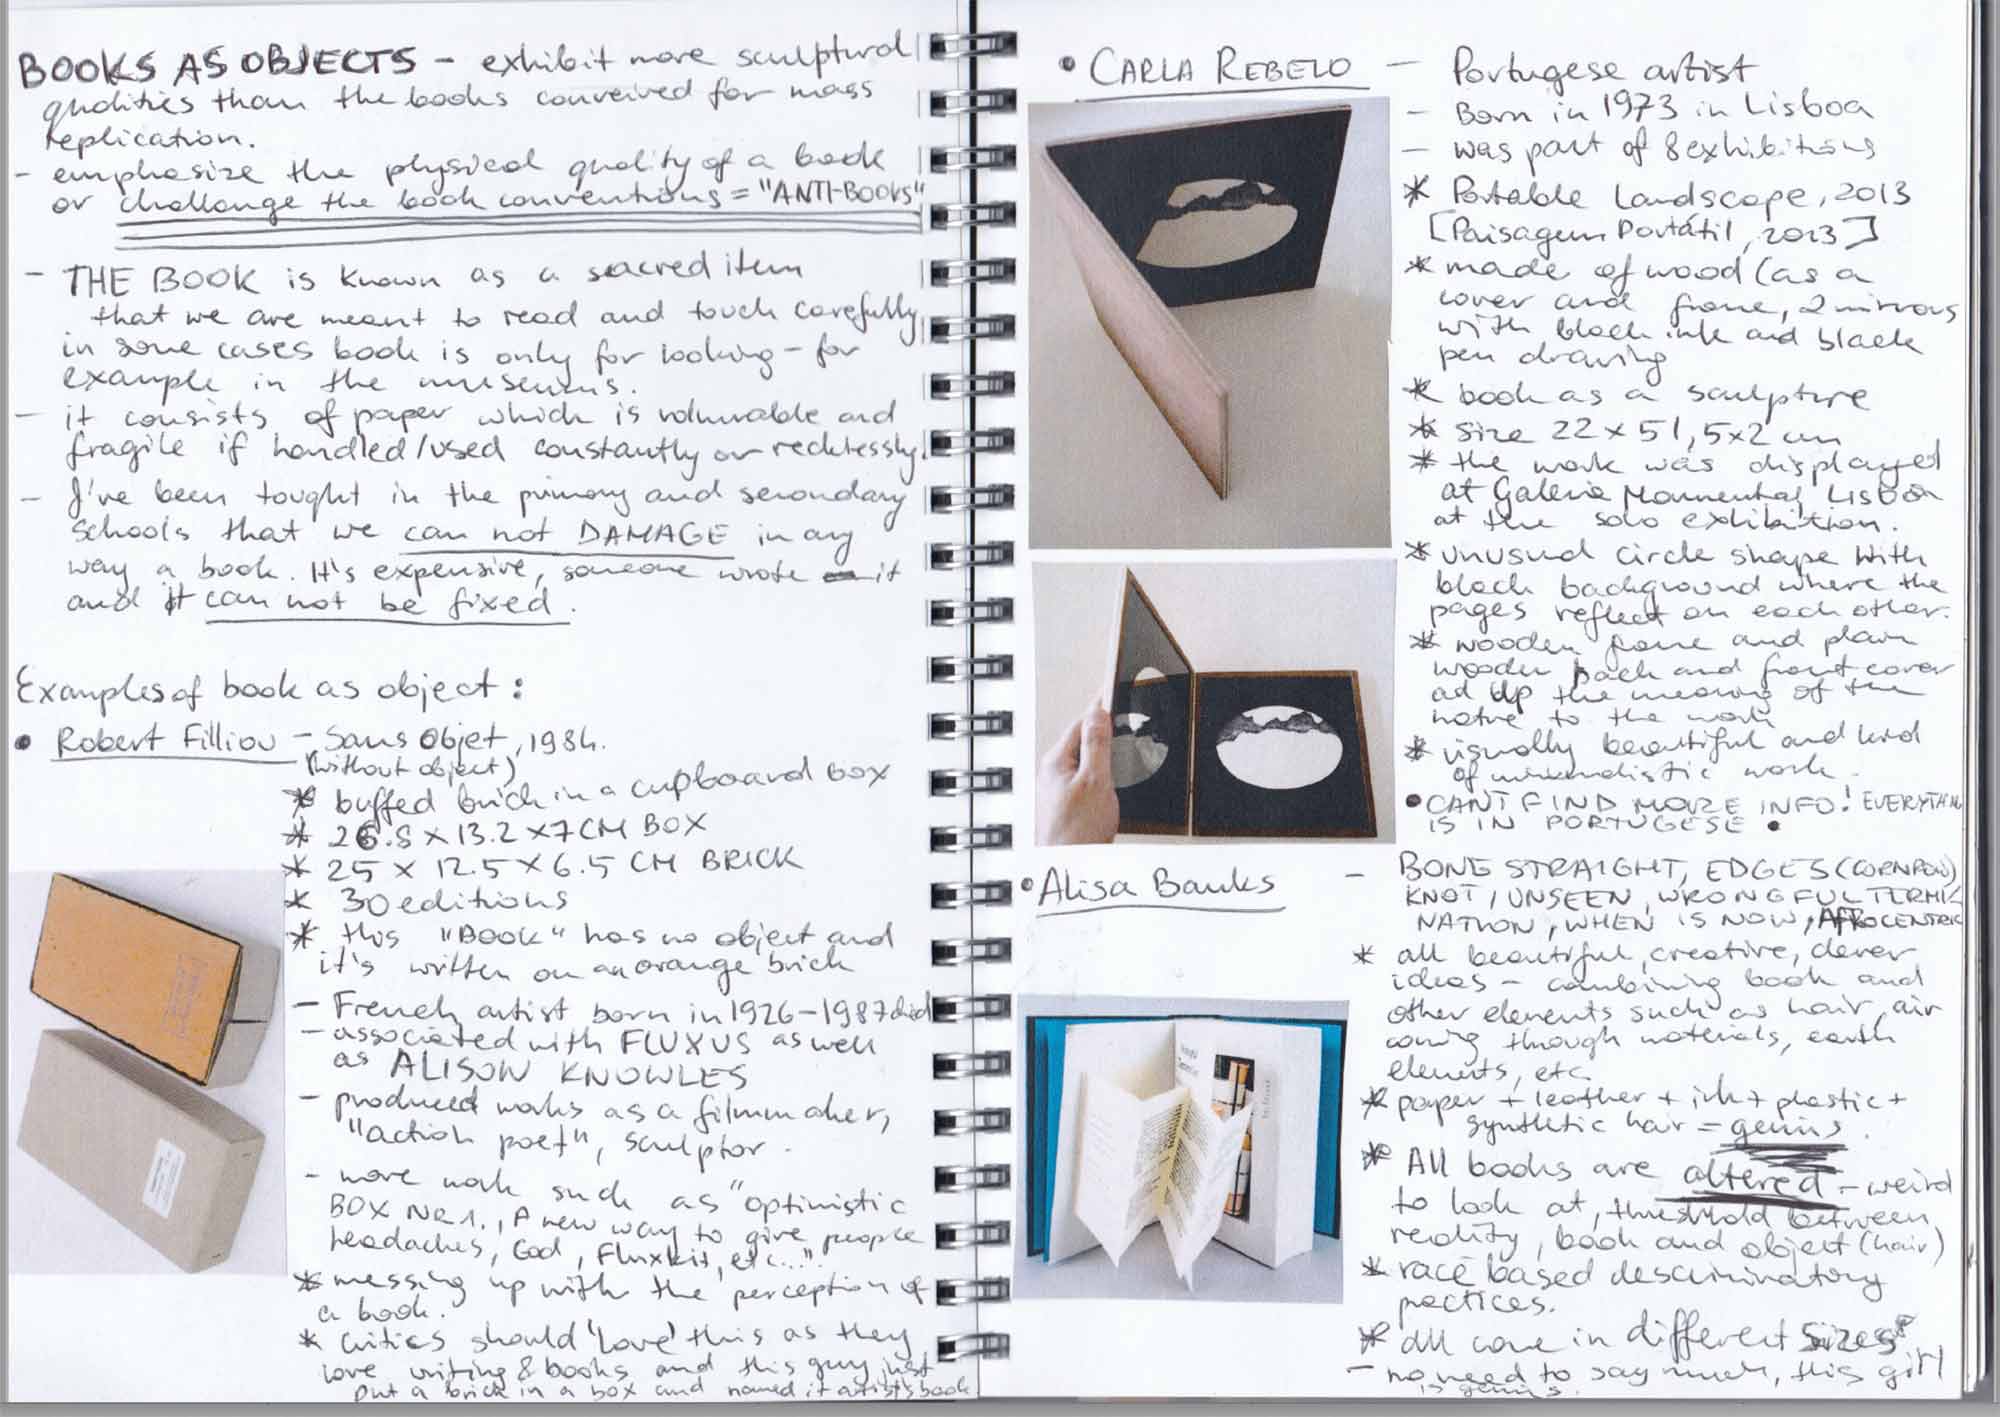 BOOKS AS OBJECTS - exhibit more sculptural
qualities than the books conveived for mass
replication.
- emphasize the physical quality of a book
or challange the book conventions = "ANTI-BOOKS"
- THE BOOK is known as a sacred item
that we are meant to read and touch carefully,
in some cases book is only for looking - for
example in the museums.
- it consists of paper which is vulnurable and
fragile if handled/used constantly or recktessly.
- I've been tought in the primary and secondary
schools that we can not DAMAGE in any
way a book. It's expensive, someone wrote it
and it can not be fixed.
Examples of book as object:
• Robert Filliou - Sans Objet, 1984.
(without object)
* buffed brick in a cupboard box
* 26.8 x 13.2 x 7 CM BOX
* 25 x 12.5 x 6.5 CM BRICK
* 30 editions
* this "BOOK" has no object and
it's written on an orange brick
- French artist born in 1926 - 1987 died
- associated with FLUXUS as well
as ALISON KNOWLES
- produced works as a filmmaker,
"action poet", sculptor.
- more work such as "optimistic
BOX NR 1., A new way to give people
headaches, God, Fluxkit, etc...".
* messing up with the perception of
a book.
* critics should 'love' this as they
love writing & books and this guy just
put a brick in a box and named it artist's book
• CARLA REBELO - Portugese artist
- Born in 1973 in Lisboa
- was part of 8 exhibitions
* Portable Landscape, 2013
[Paisagem Portátil, 2013]
* made of wood (as a
cover and frame, 2 mirrors
with black ink and black
pen drawing
* book as a sculpture
* size 22 x 51,5 x 2 cm
* the work was displayed
at Galeria Monumental, Lisboa
at the solo exhibition.
* unusual circle shape with
black background where the
pages reflect on each other.
* wooden frame and plain
wooden back and front cover
ad up the meaning of the
natre to the work
* visually beautiful and kind
of minimalistic work.
• CAN'T FIND MORE INFO! EVERYTHING
IS IN PORTUGESE •
• Alisa Banks - BONE STRAIGHT, EDGES (CORNROW)
KNOT, UNSEEN, WRONGFUL TERMI-
NATION, WHEN IS NOW, AFROCENTRIC
* all beautiful, creative, clever
ideas - combining book and
other elements such as hair, air
coming through materials, earth
elements, etc.
* paper + leather + ink + plastic +
synthetic hair = genius.
* All books are altered - weird
to look at, threshold between
reality, book and object (hair)
* race based descriminatory
practices.
* all come in different sizes
- no need to say much, this girl
is genius.